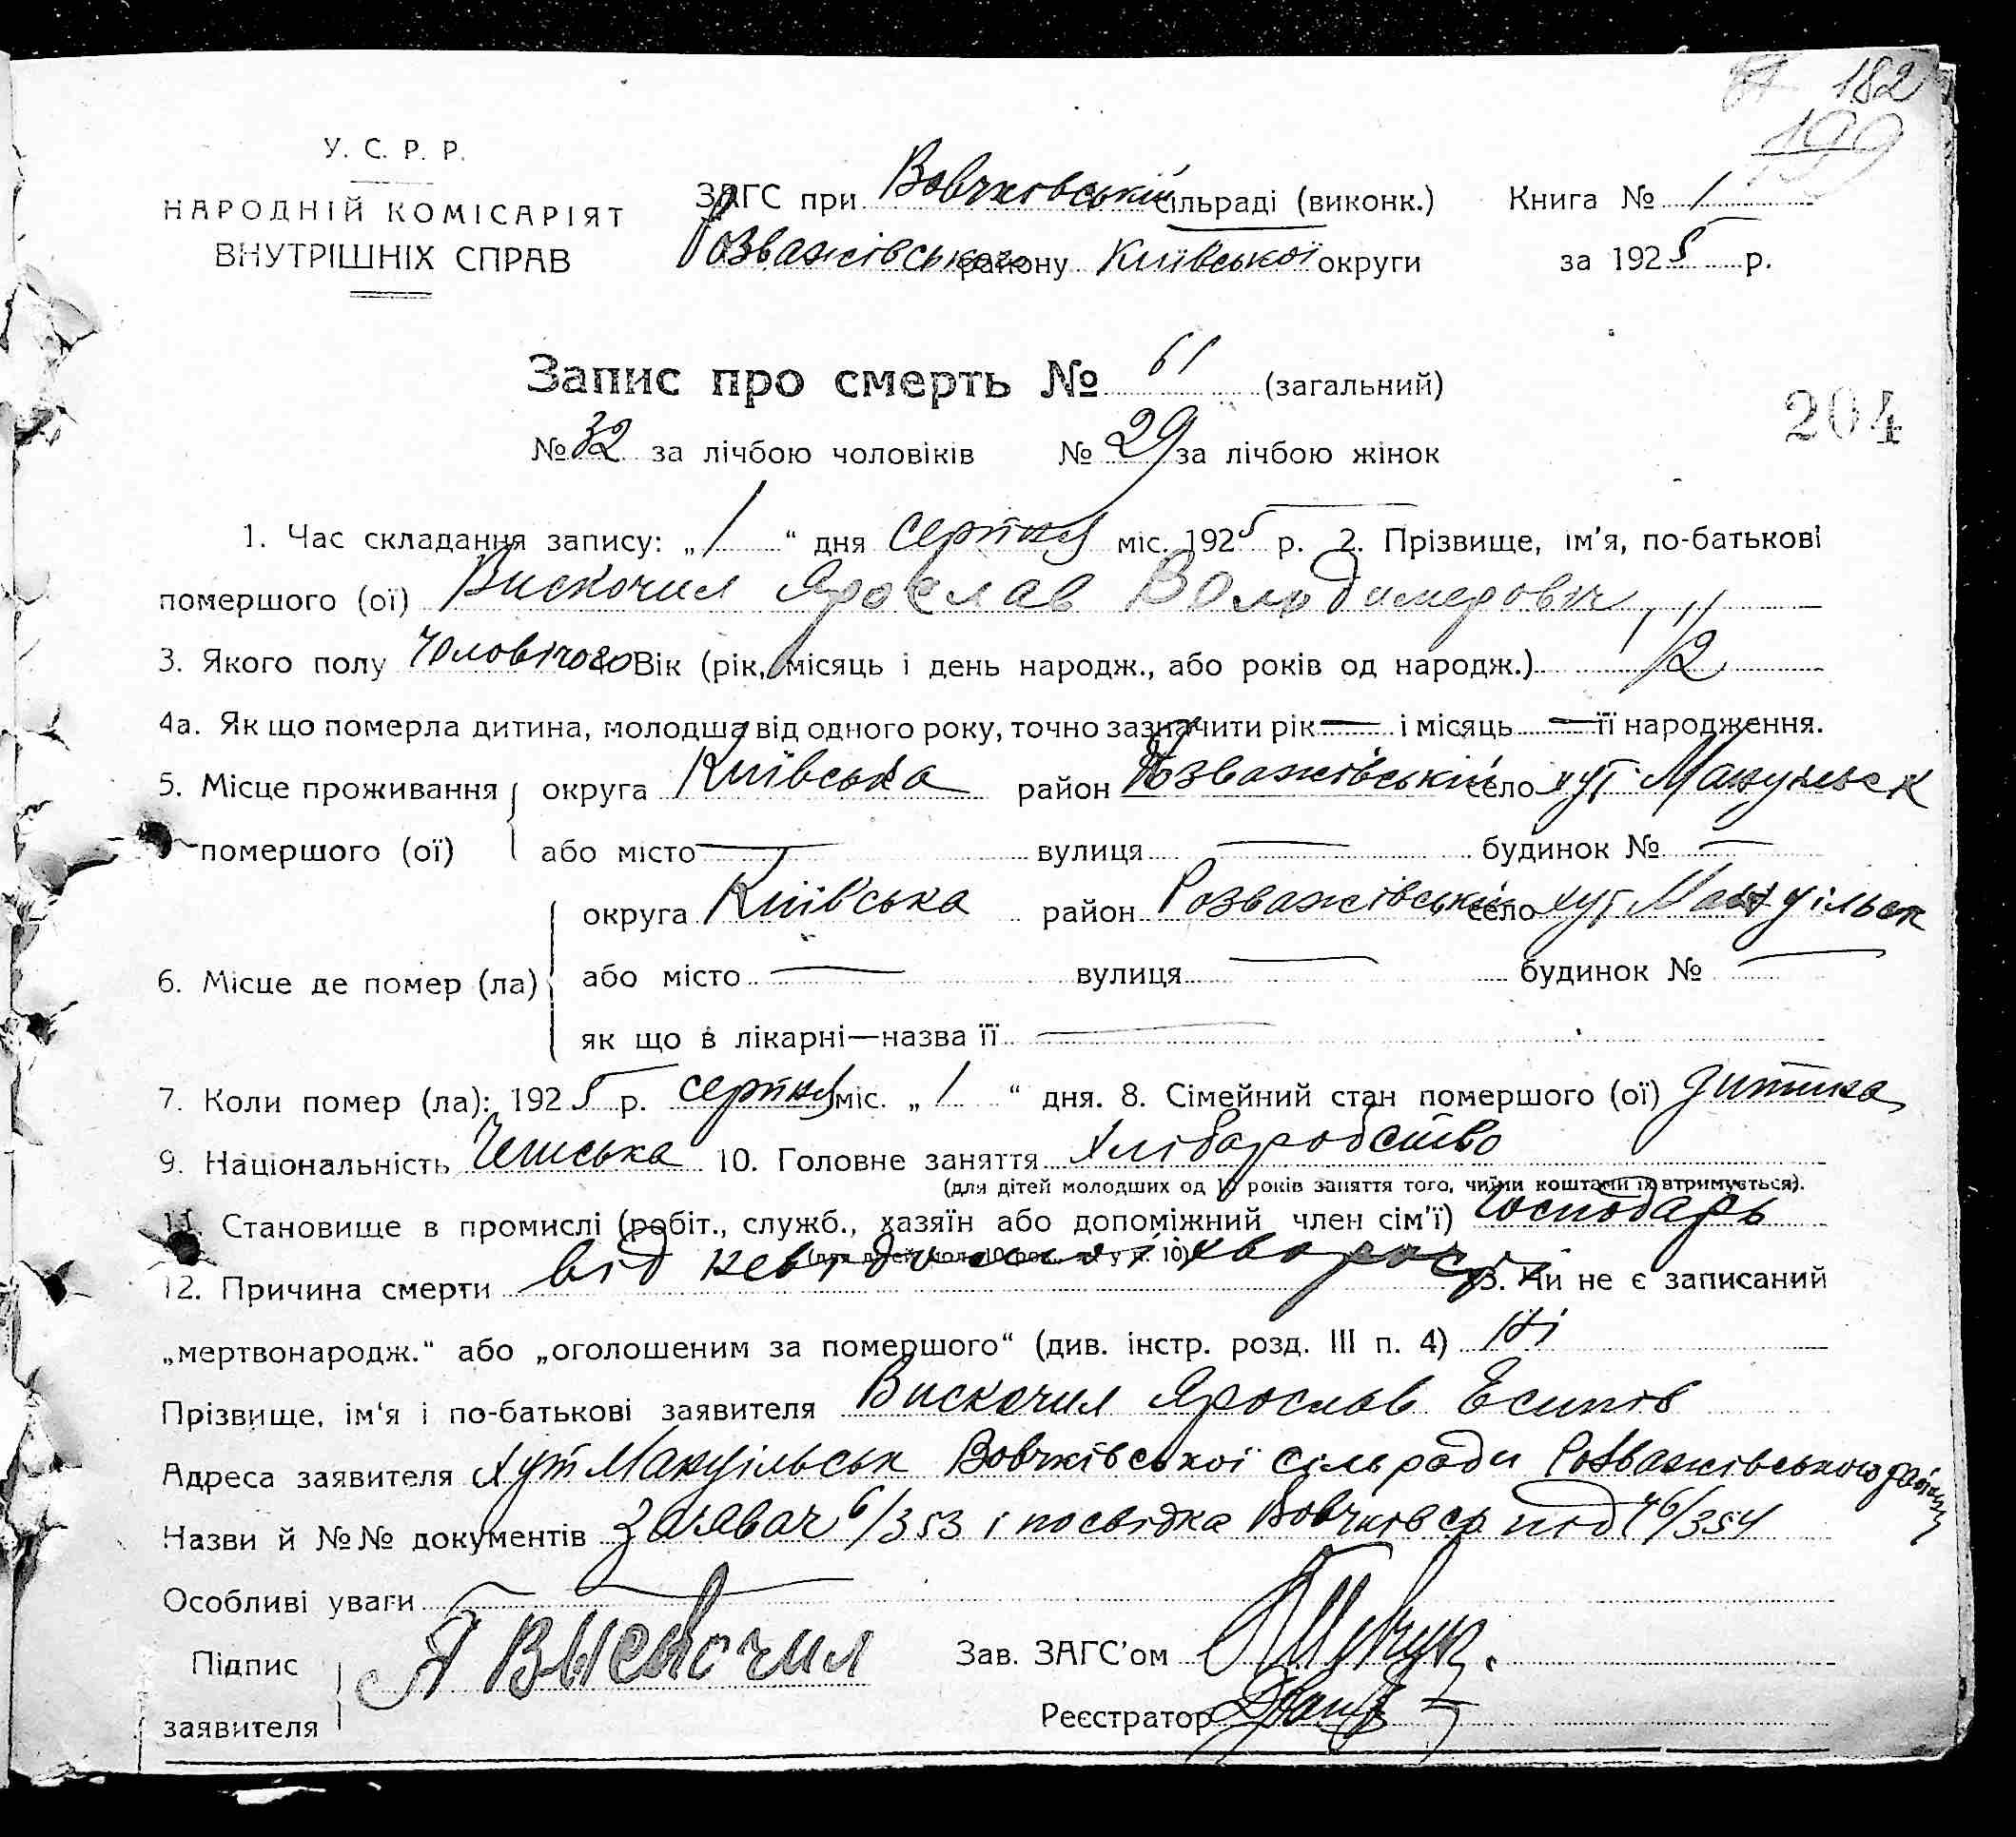 182
199
У. С. Р. Р.
НАРОДНІЙ КОМІСАРІЯТ
ВНУТРІШНІХ СПРАВ
ЗАГС при Вовчківській сільраді (виконк.) Книга № 1
Розважівського району Київської округи за 1925 р.
Запис про смерть № 61 (загальний)
204
№ 32 за лічбою чоловіків № 29 за лічбою жінок
1. Час складання запису: „1“ дня серпня міс. 1925 р. 2. Прізвище, ім'я, по-батькові
помершого (ої) Вискочил Ярослав Володимерович
3. Якого полу Чоловічого Вік (рік, місяць і день народж., або років од народж.) 1 1/2
4а. Як що померла дитина, молодша від одного року, точно зазначити рік — і місяць — її народження.
5. Місце проживання округа Київська район Розважівський село хут
помершого (ої) або місто — вулиця — будинок № —
округа Київська район Розважівський село хут
6. Місце де помер (ла) або місто — вулиця — будинок № —
як що в лікарні—назва її —
7. Коли помер (ла): 1925 р. серпня міс. „1“ дня. 8. Сімейний стан помершого (ої) дитина
9. Національність Чешська 10. Головне заняття Хлібаробство
(для дітей молодших од 10 років заняття того, чиїми коштами їх втримується).
11. Становище в промислі (робіт., служб., хазяїн або допоміжний член сім'ї) Господарь
12. Причина смерти від 13. Чи не є записаний
„мертвонародж.“ або „оголошеним за помершого“ (див. інстр. розд. III п. 4) Ні
Прізвище, ім'я і по-батькові заявителя Вискочил Ярослав Есипів
Адреса заявителя Хут Макуільськ Вовчківської сільради Розважівського району
Назви й №№ документів 6/353 і посвідка під 46/354
Особливі уваги —
Підпис Зав. ЗАГС'ом
заявителя Реєстратор